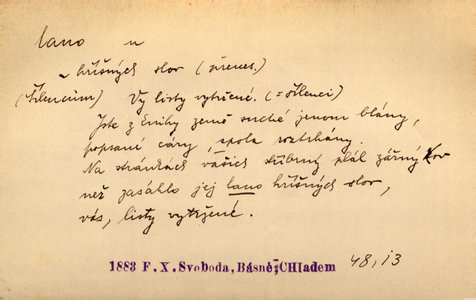 lano n
~ hříšných slov (přenes.)
(Šílencům) Vy listy vytržené. (= šílenci)
Jste z knihy země suché jenom blány,
popsané cáry, zpola roztrhány.
Na stránkách vašich stříbrný plál zářný kov
než zasáhlo jej lano hříšných slov,
vás, listy vytržené.
1883 F. X. Svoboda, Básně: CHladem
48, 13